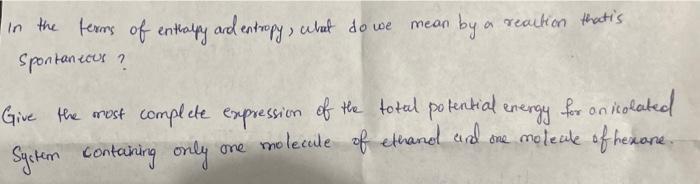 In the terms of enthalpy and entropy, what do we mean by a reaction that is
spontaneous ?
Give the most complete expression of the total potential energy for an isolated
System containing only one molecule of ethanol and one molecule of hexane.